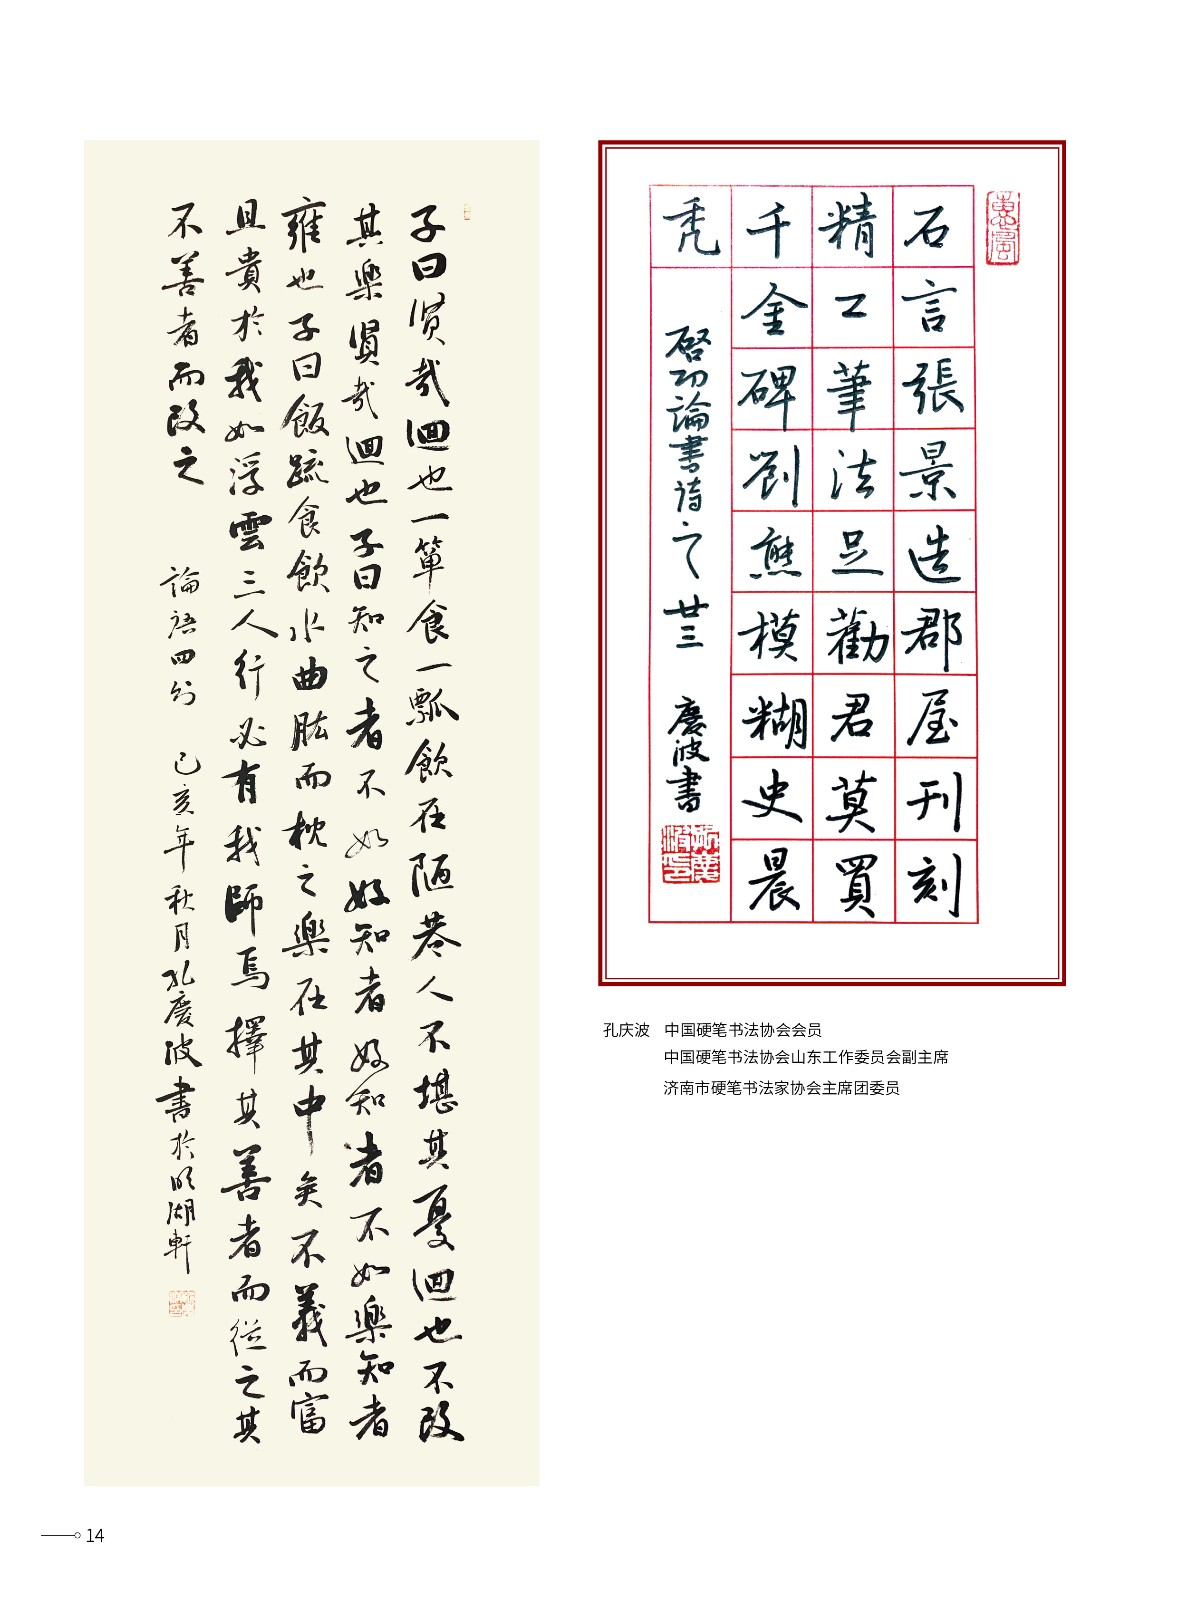 子曰賢哉迴也一簞食一瓢飲在陋巷人不堪其憂迴也不改
其樂賢哉迴也子曰知之者不如好知者好知者不如樂知者
雍也子曰飯疏食飲水曲肱而枕之樂在其中矣不義而富
且貴於我如浮雲三人行必有我師焉擇其善者而從之其
不善者而改之 論語四則 己亥年秋月孔慶波書於明湖軒
石言張景造郡屋刊刻
精工筆法足勸君莫買
千金碑劉熊模糊史晨
禿 啓功論書詩之廿三 慶波書
孔庆波 中国硬笔书法协会会员
中国硬笔书法协会山东工作委员会副主席
济南市硬笔书法家协会主席团委员
14